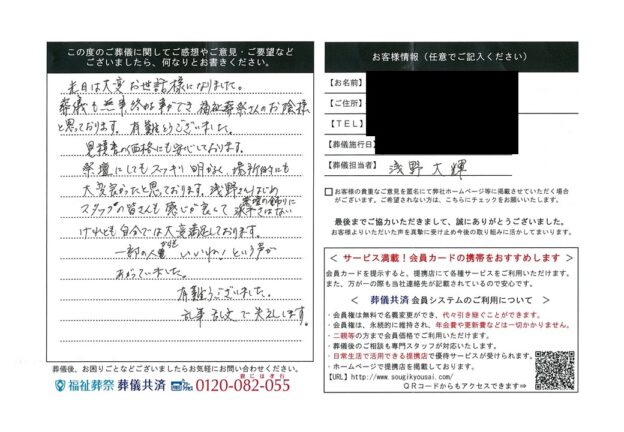 この度のご葬儀に関してご感想やご意見・ご要望など
ございましたら、何なりとお書きください。
先日は大変お世話様になりました。
葬儀も無事終る事ができ 福祉葬祭さんのお陰様
と思っております。有難うございました。
見積書の価格にも安心しております。
祭壇にしてもスッキリ明かるく、場所的にも
大変良かったと思っております。浅野さんはじめ
スタッフの皆さんも感じが良くて
派手さはない
けれども自分では大変満足しております。
一部の人達からも いいね！という声が
あがっていました。
有難うございました。
乱筆 乱文で失礼します。
葬儀後、お困りごとなどございましたらお気軽にお問い合わせください。
福祉葬祭 葬儀共済 0120-082-055
親には孝行
お客様情報（任意でご記入ください）
【お名前】
【ご住所】
【TEL】
【葬儀施行日】
【葬儀担当者】 浅野大輝
□お客様の貴重なご意見を匿名にて弊社ホームページ等に掲載させていただく場合
がございます。ご希望されない方は、こちらにチェックをお願いします。
最後までご協力いただきまして、誠にありがとうございました。
お客様よりいただいた声を真摯に受け止め今後の取り組みに活かしてまいります。
< サービス満載！会員カードの携帯をおすすめします >
会員カードを提示すると、提携店にて各種サービスをご利用いただけます。
また、万が一の際も当社連絡先が記載されているので安心です。
< 葬儀共済 会員システムのご利用について >
・会員権は無料で名義変更ができ、代々引き継ぐことができます。
・会員権は、永続的に維持され、年会費や更新費などは一切かかりません。
・二親等の方まで会員価格でご利用いただけます。
・葬儀後のご相談も専門スタッフが対応いたします。
・日常生活で活用できる提携店で優待サービスが受けられます。
・ホームページで提携店を掲載しております。
【URL】http://www.sougikyousai.com/
QRコードからもアクセスできます⇒